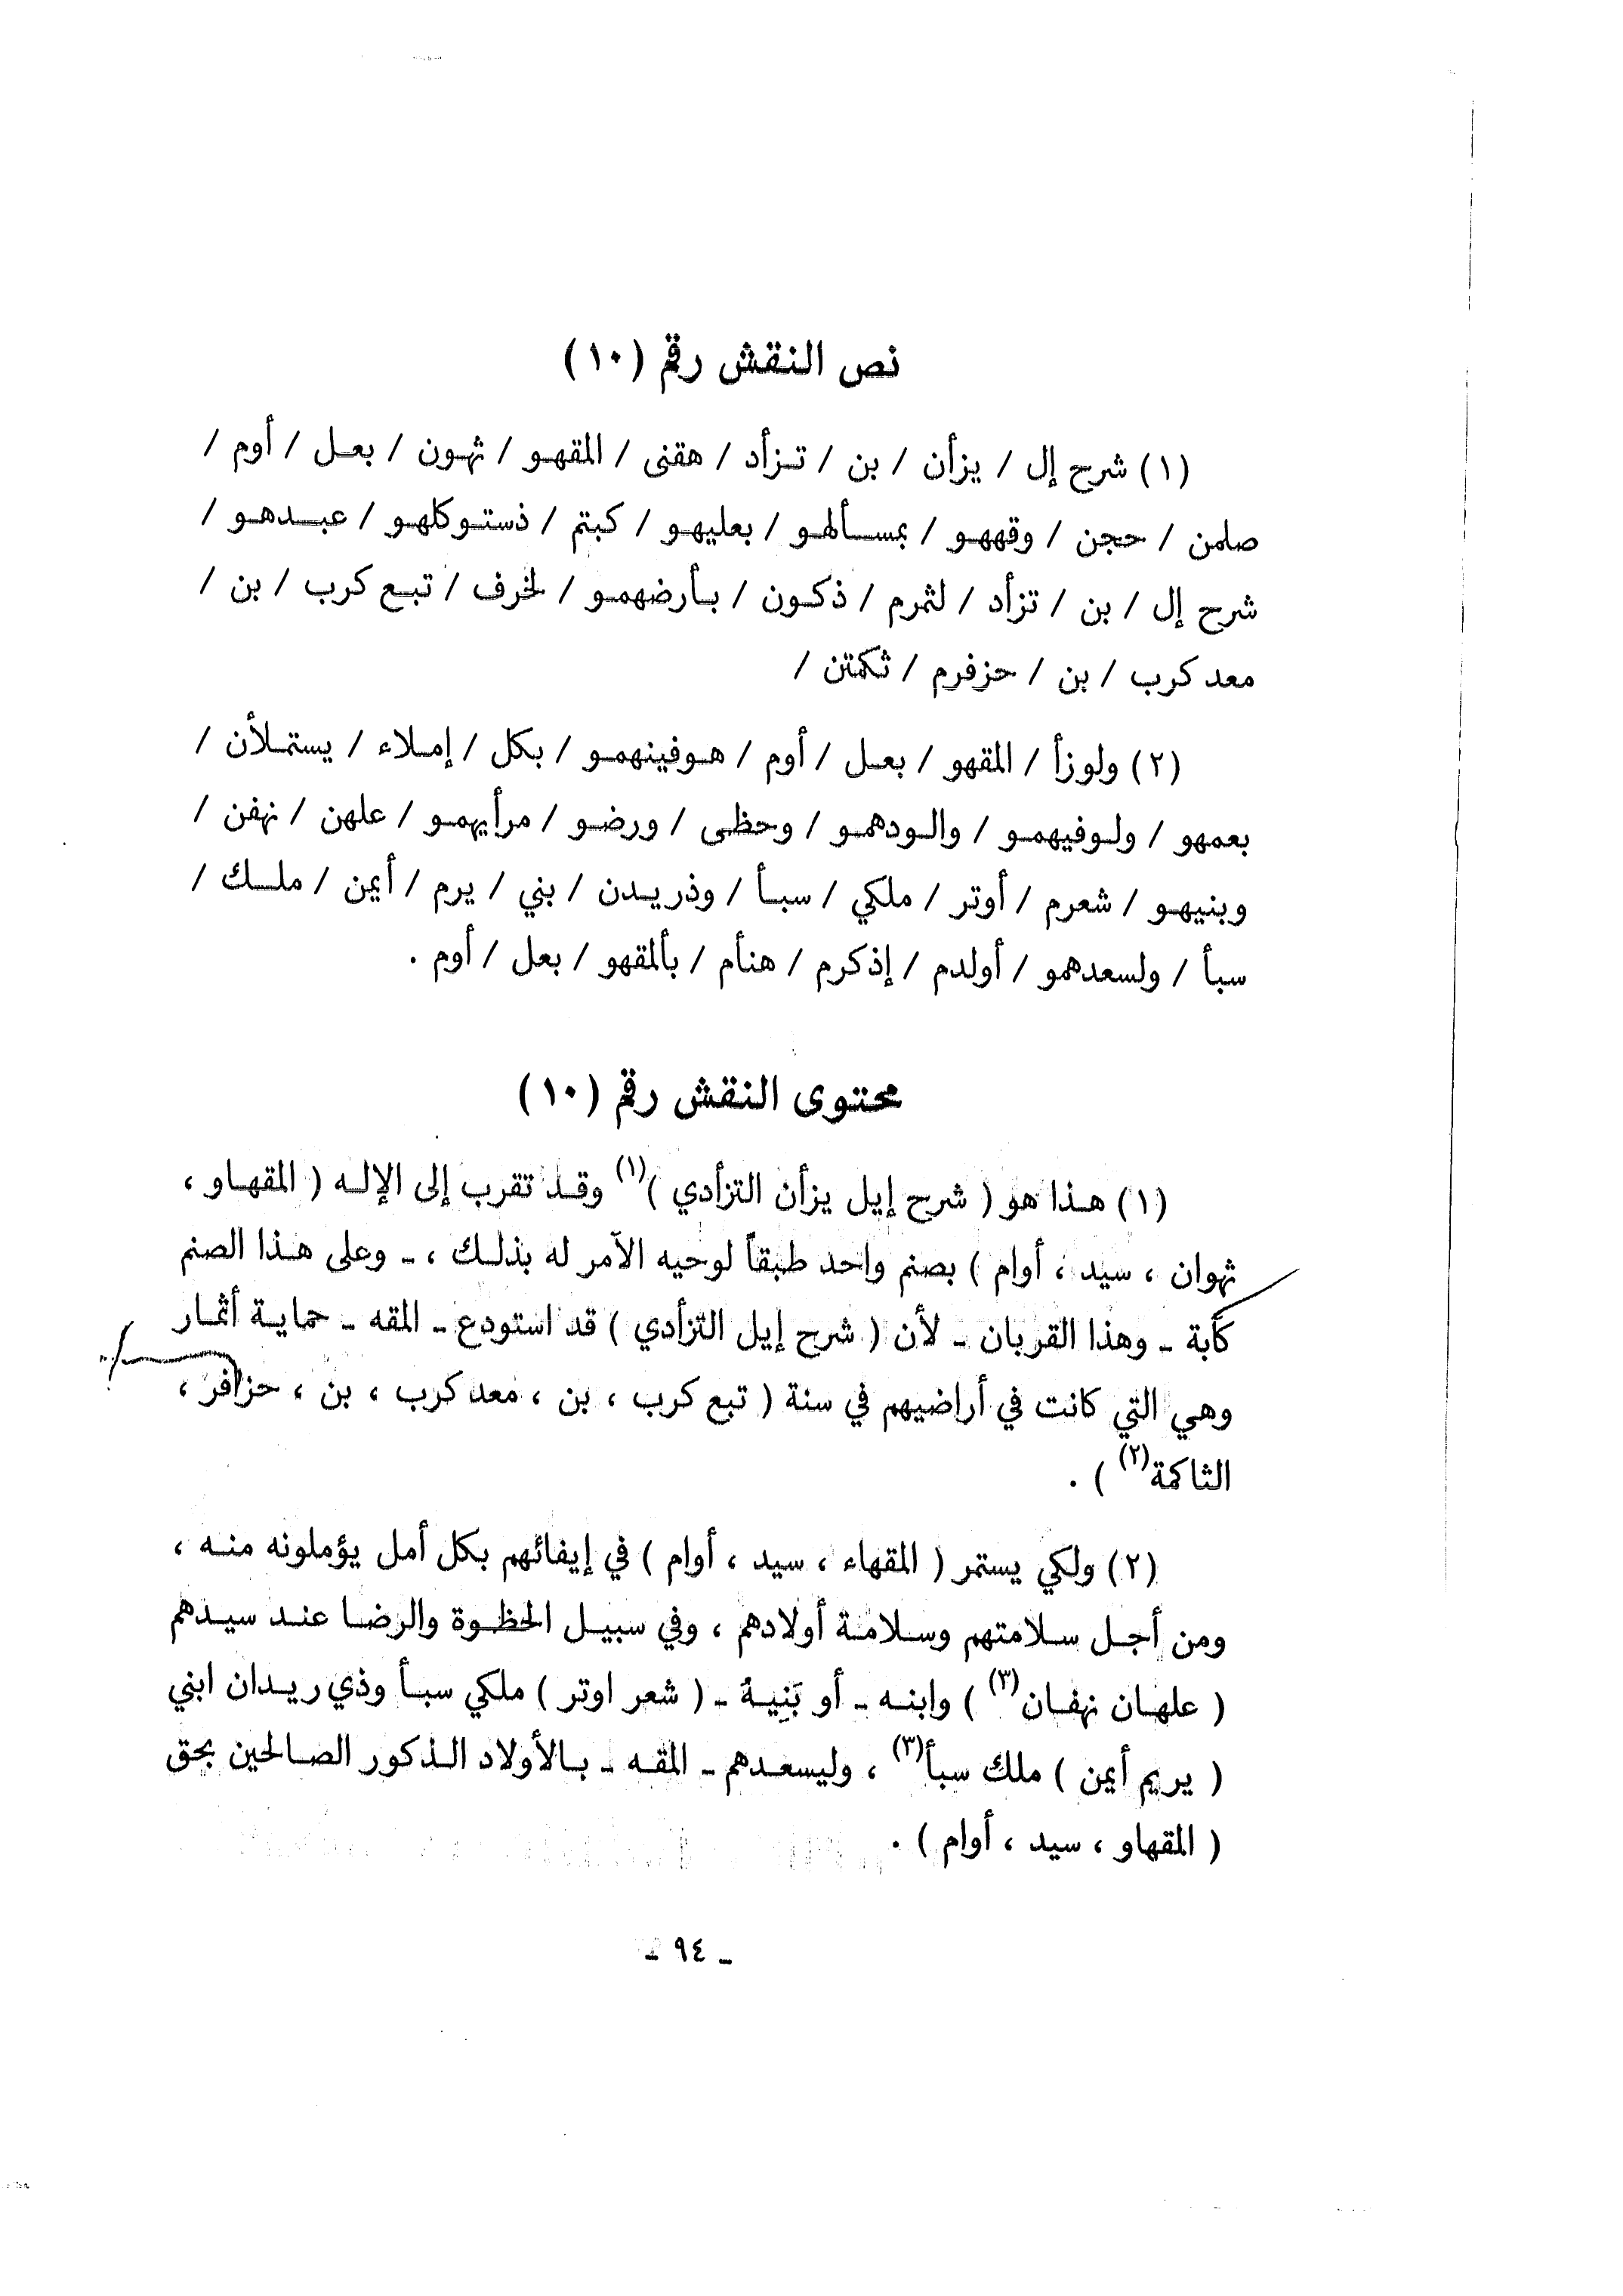 نص النقش رقم (١٠)
(١) شرح إل / يزأن / بن / تزأد / هقنى / المقهو / ثهون / بعل / أوم /
صلمن / حجن / وقههو / بمسألهو / بعليهو / كبتم / ذستوكلهو / عبدهو /
شرح إل / بن / تزأد / لثمرم / ذكون / بأرضهمو / لخرف / تبع كرب / بن /
معد كرب / بن / حزفرم / ثكمتن /
(٢) ولوزأ / المقهو / بعل / أوم / هوفينهمو / بكل / إملاء / يستملأن /
بعمهو / ولوفيهمو / والودهمو / وحظي / ورضو / مرأيهمو / علهن / نهفن /
وبنيهو / شعرم / أوتر / ملكي / سبأ / وذريدن / بني / يرم / أيمن / ملك /
سبأ / ولسعدهمو / أولدم / إذكرم / هنأم / بألمقهو / بعل / أوم .
محتوى النقش رقم (١٠)
(١) هذا هو ( شرح إيل يزأن التزأدي )(١) وقد تقرب إلى الإله ( المقهاو ،
ثهوان ، سيد ، أوام ) بصنم واحد طبقاً لوحيه الآمر له بذلك ، ـ وعلى هذا الصنم
كآبة ـ وهذا القربان ـ لأن ( شرح إيل التزأدي ) قد استودع ـ المقه ـ حماية أثمار
وهي التي كانت في أراضيهم في سنة ( تبع كرب ، بن ، معد كرب ، بن ، حزافر ،
الثاكمة(٢) ) .
(٢) ولكي يستمر ( المقهاء ، سيد ، أوام ) في إيفائهم بكل أمل يؤملونه منه ،
ومن أجل سلامتهم وسلامة أولادهم ، وفي سبيل الحظوة والرضا عند سيدهم
( علهان نهفان(٣) ) وابنه ـ أو بَنِيهْ ـ ( شعر اوتر ) ملكي سبأ وذي ريدان ابني
( يريم أيمن ) ملك سبأ(٣) ، وليسعدهم ـ المقه ـ بالأولاد الذكور الصالحين بحق
( المقهاو ، سيد ، أوام ) .
ـ ٩٤ ـ